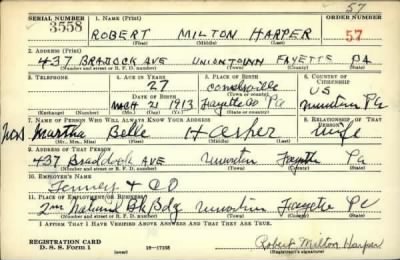 57
SERIAL NUMBER 1. NAME (Print) ORDER NUMBER
3558 ROBERT MILTON HARPER 57
(First) (Middle) (Last)
2. ADDRESS (Print)
437 BRADDOCK AVE UNIONTOWN FAYETTE PA
(Number and street or R. F. D. number) (Town) (County) (State)
3. TELEPHONE 4. AGE IN YEARS 5. PLACE OF BIRTH 6. COUNTRY OF CITIZENSHIP
27
DATE OF BIRTH (Town or county) US
MARCH 21 1913 Fayette Co Pa
(Exchange) (Number) (Mo.) (Day) (Yr.) (State or country)
7. NAME OF PERSON WHO WILL ALWAYS KNOW YOUR ADDRESS 8. RELATIONSHIP OF THAT PERSON
Mrs Martha Belle Harper Wife
(Mr., Mrs., Miss) (First) (Middle) (Last)
9. ADDRESS OF THAT PERSON
437 Braddock AVE Fayette Pa
(Number and street or R. F. D. number) (Town) (County) (State)
10. EMPLOYER'S NAME
& CO
11. PLACE OF EMPLOYMENT OR BUSINESS
2nd National Bk Bdg Fayette Pa
(Number and street or R. F. D. number) (Town) (County) (State)
I AFFIRM THAT I HAVE VERIFIED ABOVE ANSWERS AND THAT THEY ARE TRUE.
REGISTRATION CARD
D. S. S. Form 1 (over) 16—17105 Robert Milton Harper
(Registrant's signature)